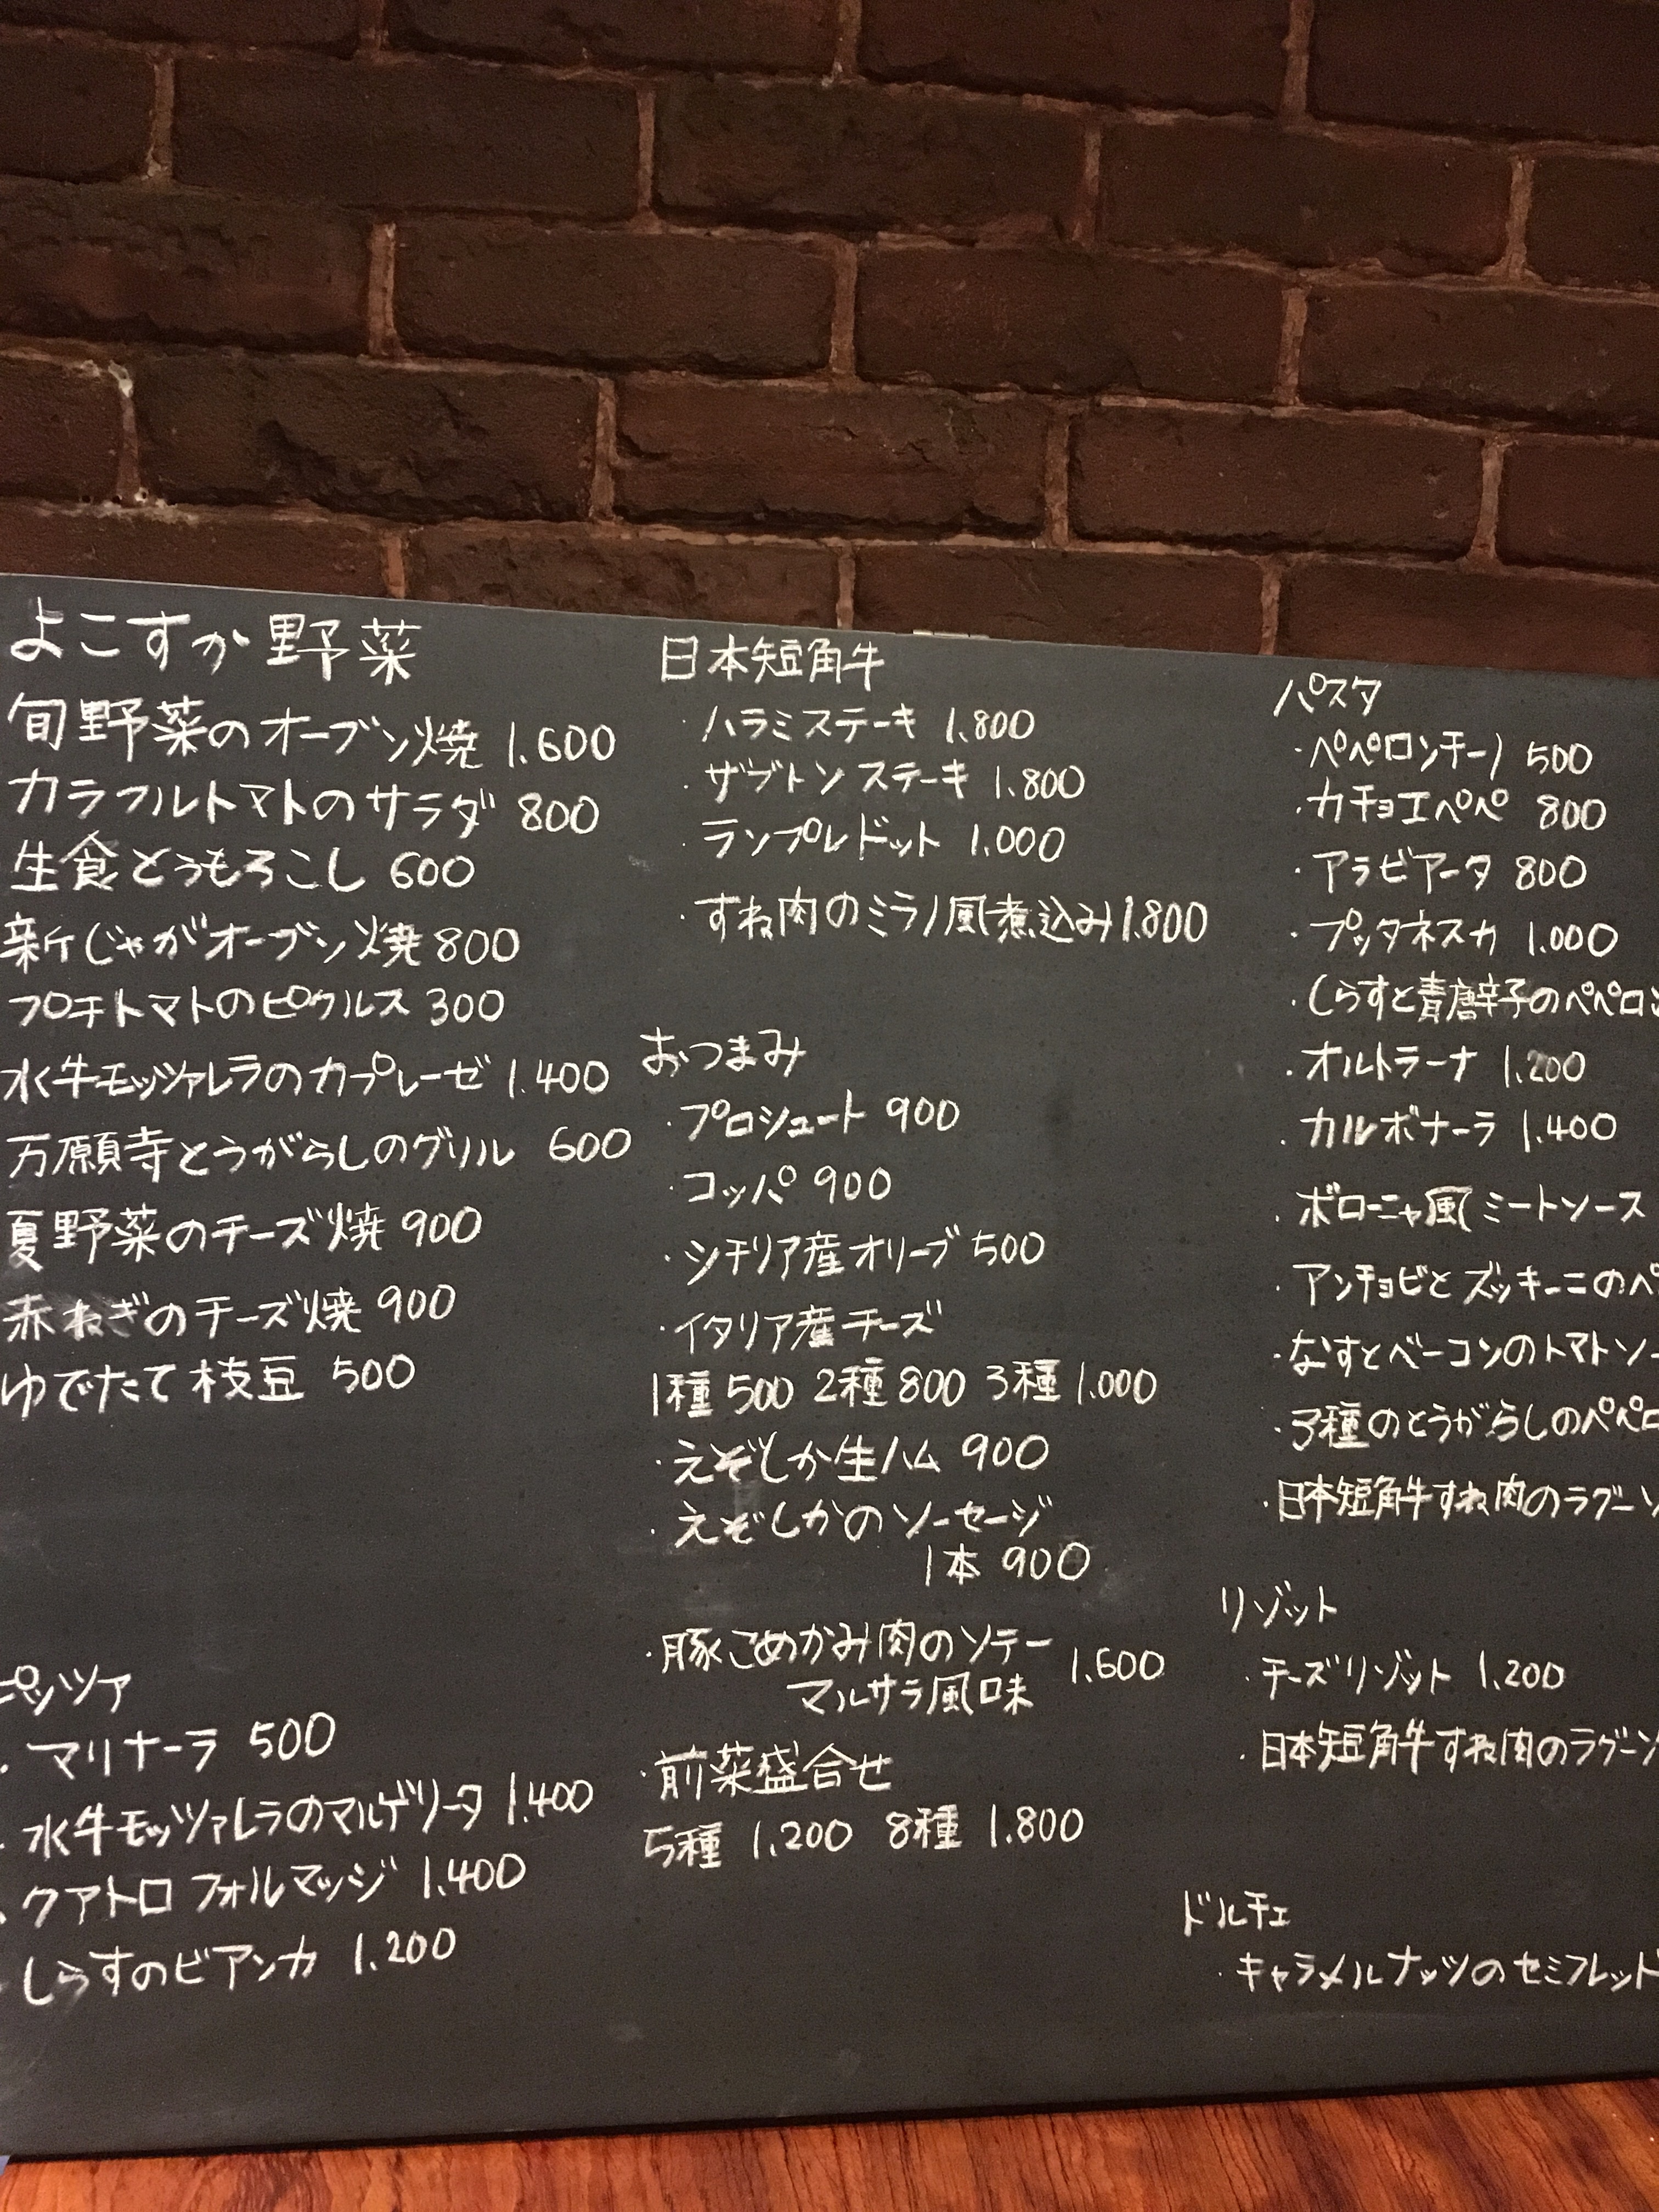 よこすか野菜
旬野菜のオーブン焼 1.600
カラフルトマトのサラダ 800
生食とうもろこし 600
新じゃがオーブン焼 800
プチトマトのピクルス 300
水牛モッツァレラのカプレーゼ 1.400
万願寺とうがらしのグリル 600
夏野菜のチーズ焼 900
赤ねぎのチーズ焼 900
ゆでたて枝豆 500
ピッツァ
・マリナーラ 500
・水牛モッツァレラのマルゲリータ 1.400
・クアトロフォルマッジ 1.400
・しらすのビアンカ 1.200
日本短角牛
・ハラミステーキ 1.800
・ザブトンステーキ 1.800
・ランプレドット 1.000
・すね肉のミラノ風煮込み 1.800
おつまみ
・プロシュート 900
・コッパ 900
・シチリア産オリーブ 500
・イタリア産チーズ
1種 500 2種 800 3種 1.000
・えぞしか生ハム 900
・えぞしかのソーセージ
1本 900
・豚こめかみ肉のソテー 1.600
マルサラ風味
・前菜盛合せ
5種 1.200 8種 1.800
パスタ
・ペペロンチーノ 500
・カチョエペペ 800
・アラビアータ 800
・プッタネスカ 1.000
・しらすと青唐辛子のペペロン
・オルトラーナ 1.200
・カルボナーラ 1.400
・ボローニャ風ミートソース
・アンチョビとズッキーニのペ
・なすとベーコンのトマトソー
・3種のとうがらしのペペロ
・日本短角牛すね肉のラグーソ
リゾット
・チーズリゾット 1.200
・日本短角牛すね肉のラグーソ
ドルチェ
・キャラメルナッツのセミフレッド